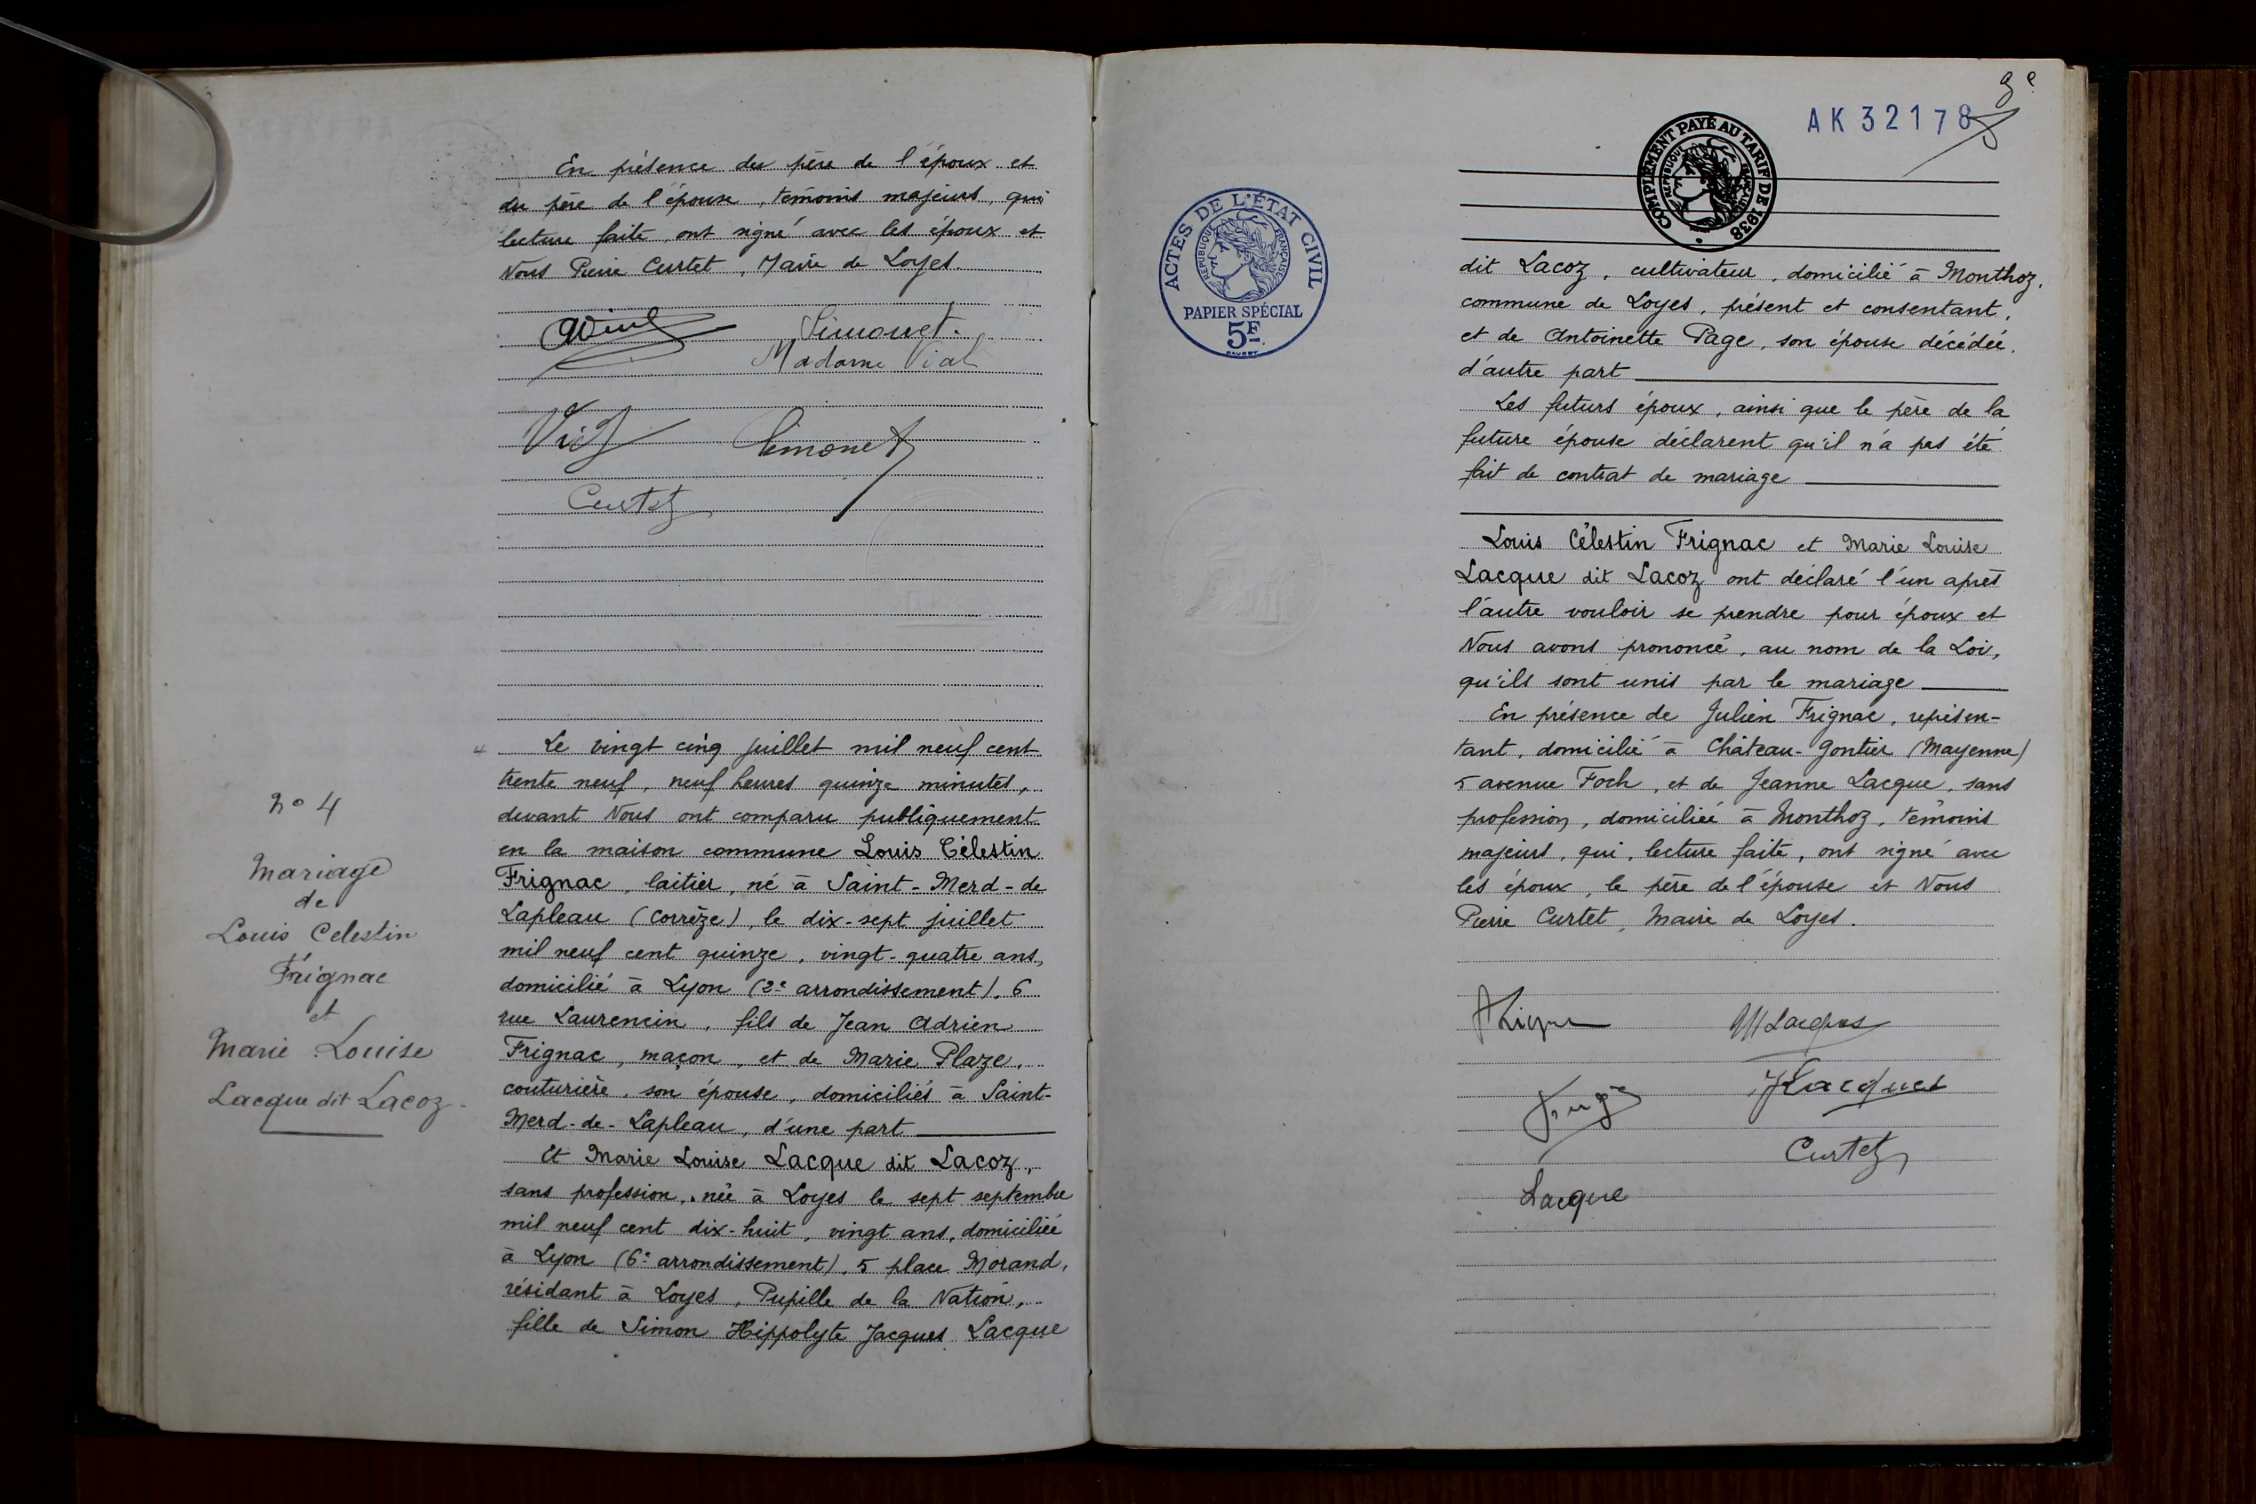 En présence du père de l'époux et
du père de l'épouse, témoins majeurs, qui
lecture faite, ont signé avec les époux et
Nous Pierre Curtet, Maire de Loyes.
Simonet.
Madame Vial
Vial
Simonet
Curtet
4
Le vingt cinq juillet mil neuf cent
trente neuf, neuf heures quinze minutes,
devant Nous ont comparu publiquement
en la maison commune Louis Célestin
Frignac, laitier, né à Saint-Merd-de
Lapleau (Corrèze), le dix-sept juillet
mil neuf cent quinze, vingt-quatre ans,
domicilié à Lyon (2e arrondissement), 6
rue Laurencin, fils de Jean Adrien
Frignac, maçon, et de Marie Plaze,
couturière, son épouse, domiciliés à Saint-
Merd-de-Lapleau, d'une part
Et Marie Louise Lacque dit Lacoz,
sans profession, née à Loyes le sept septembre
mil neuf cent dix-huit, vingt ans, domiciliée
à Lyon (6e arrondissement), 5 place Morand,
résidant à Loyes, Pupille de la Nation,
fille de Simon Hippolyte Jacques Lacque
no 4
Mariage
de
Louis Celestin
Frignac
et
Marie Louise
Lacque dit Lacoz
AK 32178
COMPLÉMENT PAYÉ AU TARIF DE 1938
ACTES DE L'ÉTAT CIVIL
RÉPUBLIQUE FRANÇAISE
PAPIER SPÉCIAL
5F
dit Lacoz, cultivateur, domicilié à Monthoz,
commune de Loyes, présent et consentant,
et de Antoinette Page, son épouse décédée,
d'autre part
Les futurs époux, ainsi que le père de la
future épouse déclarent qu'il n'a pas été
fait de contrat de mariage
Louis Célestin Frignac et Marie Louise
Lacque dit Lacoz ont déclaré l'un après
l'autre vouloir se prendre pour époux et
Nous avons prononcé, au nom de la Loi,
qu'ils sont unis par le mariage
En présence de Julien Frignac, représen-
tant, domicilié à Château-Gontier (Mayenne)
5 avenue Foch, et de Jeanne Lacque, sans
profession, domiciliée à Monthoz, témoins
majeurs, qui, lecture faite, ont signé avec
les époux, le père de l'épouse et Nous
Pierre Curtet, Maire de Loyes.
JLacques
Curtet
Lacque